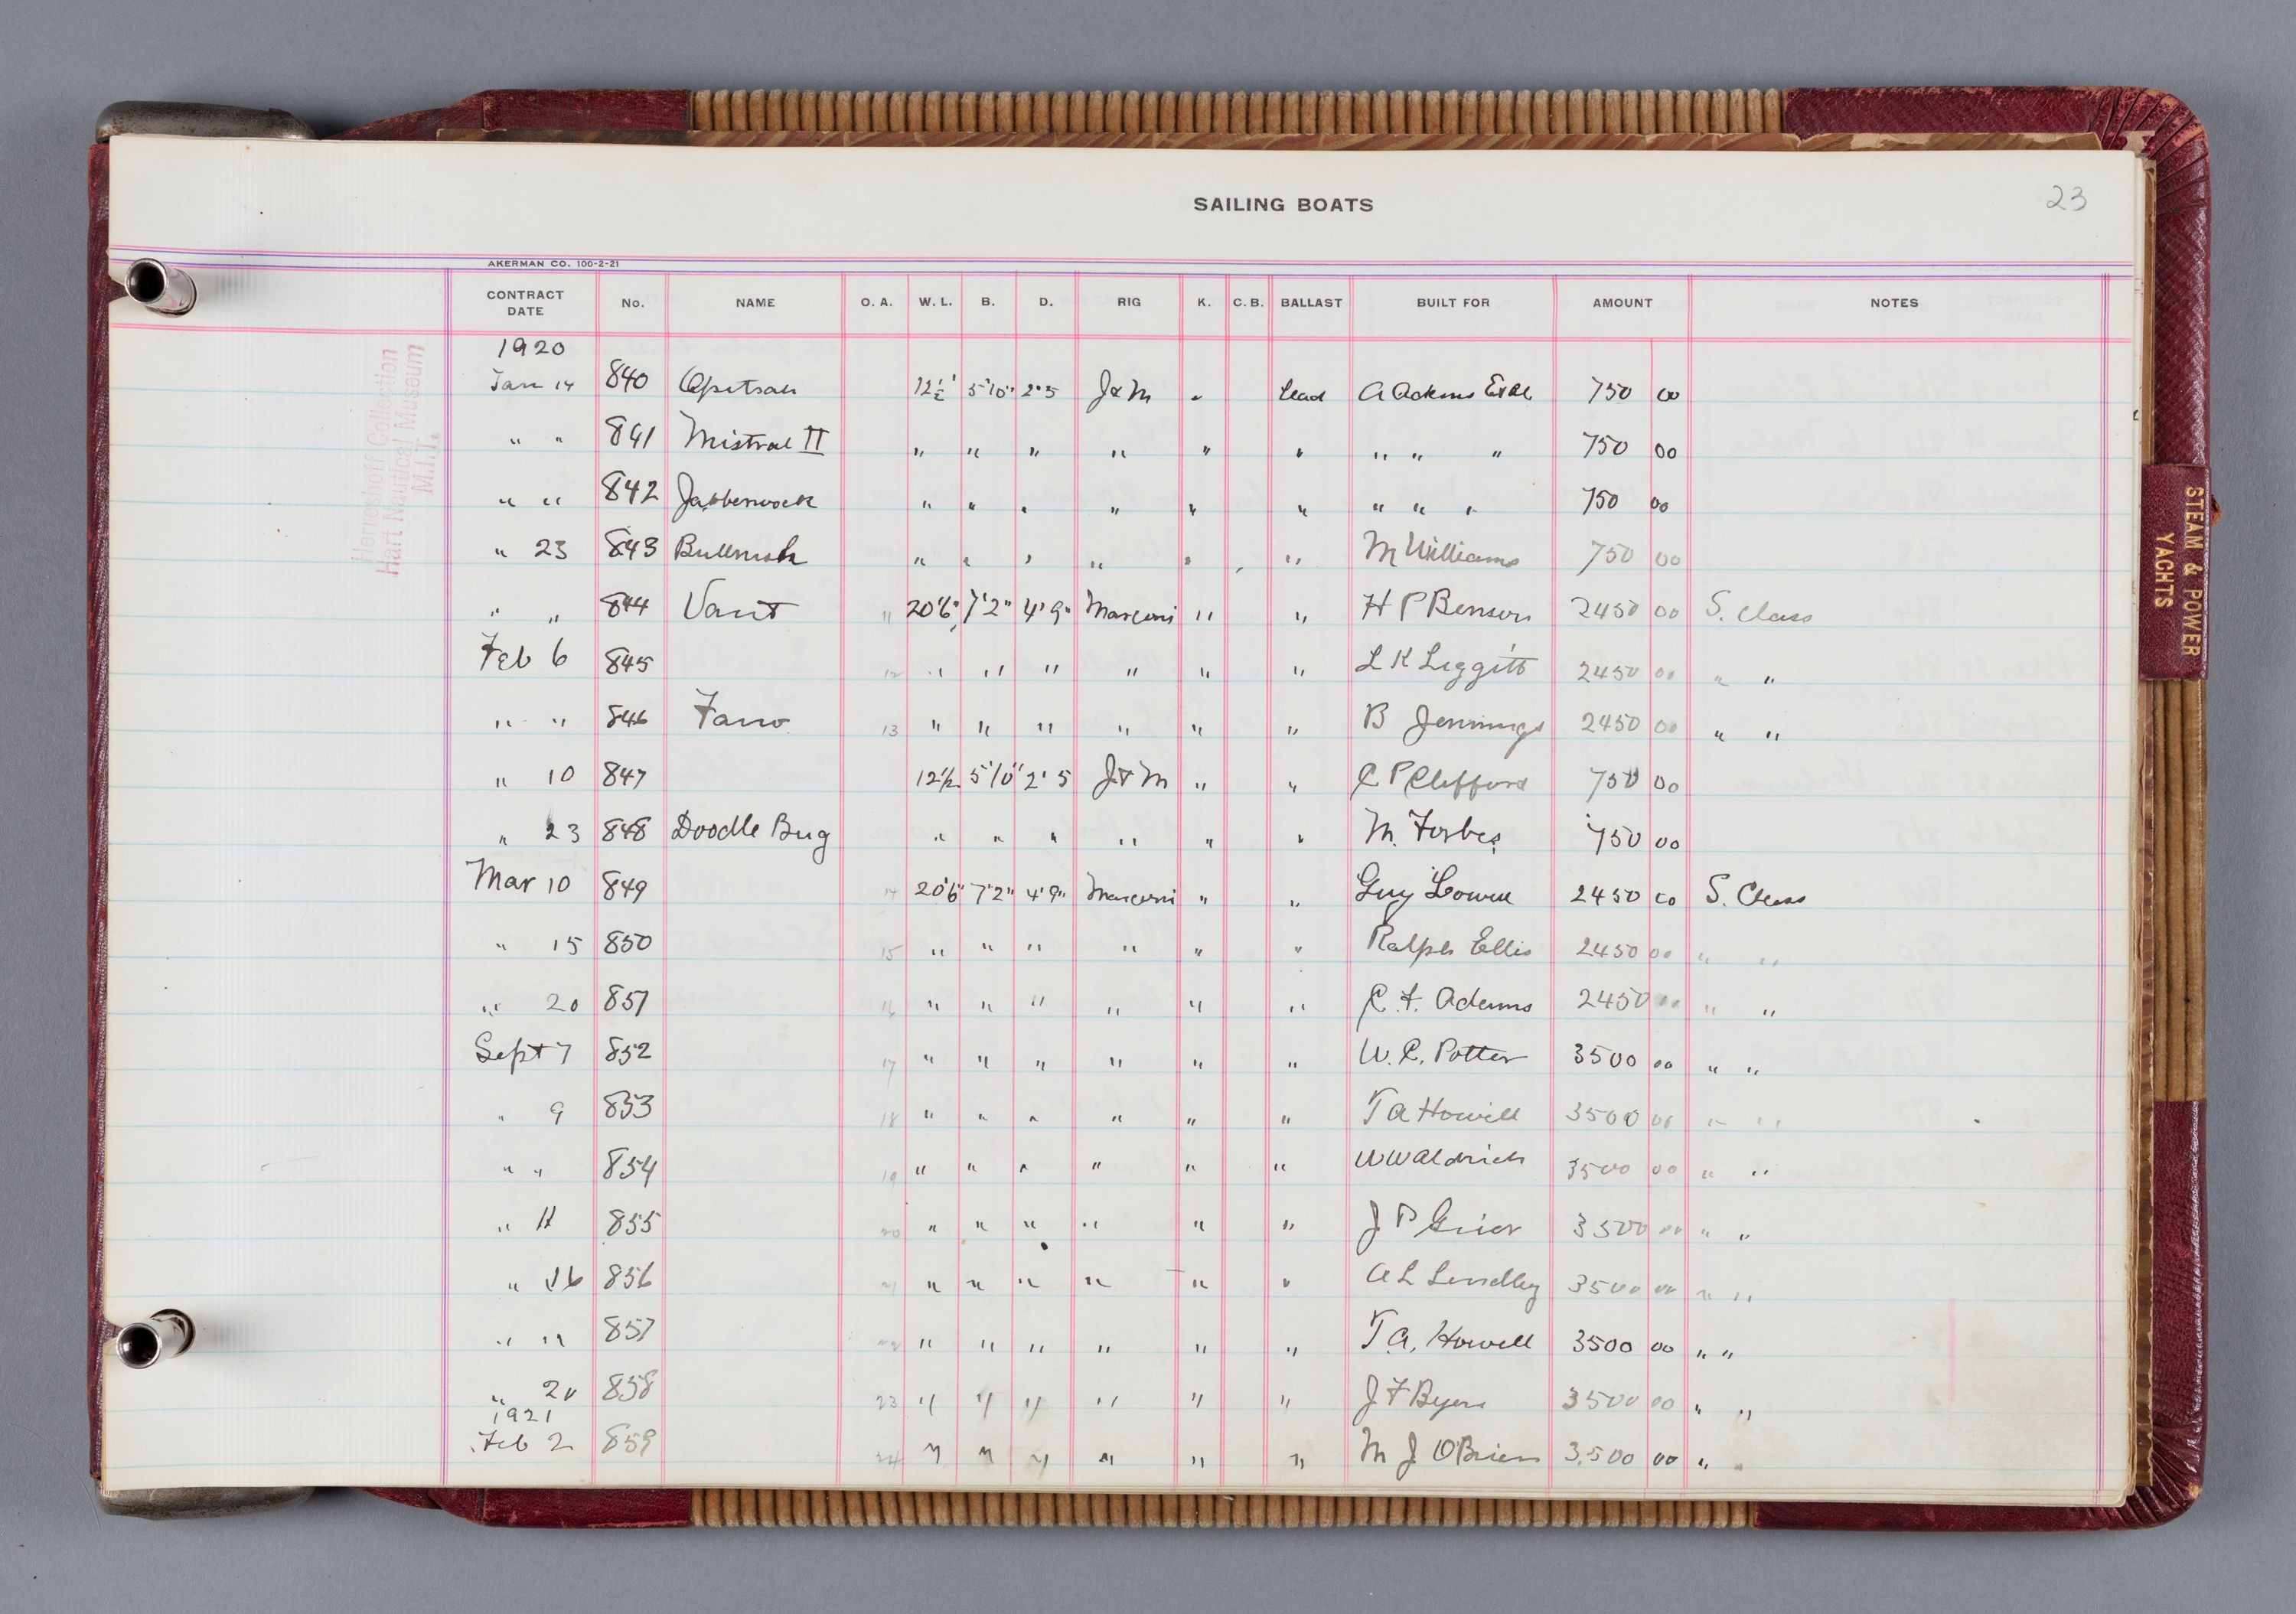 SAILING BOATS
23
AKERMAN CO. 100-2-21
CONTRACT DATE No. NAME O. A. W. L. B. D. RIG K. C. B. BALLAST BUILT FOR AMOUNT NOTES
1920
Jan 14 840 12½' 5'10" 2'5 J & M " Lead 750 00
" " 841 Mistral II " " " " " " " " " 750 00
" " 842 Jabberwock " " " " " " " " " 750 00
" 23 843 Bullrush " " " " " " M Williams 750 00
" " 844 11 20'6" 7'2" 4'9" Marconi " " H P Benson 2450 00 S. Class
Feb 6 845 12 " " " " " " L K Liggitt 2450 00 " "
" " 846 13 " " " " " " B Jennings 2450 00 " "
" 10 847 12½ 5'10" 2'5 J & M " " C P Clifford 750 00
" 23 848 Doodle Bug " " " " " " M. Forbes 750 00
Mar 10 849 14 20'6" 7'2" 4'9" Marconi " " Guy Lowell 2450 00 S. Class
" 15 850 15 " " " " " " Ralph Ellis 2450 00 " "
" 20 851 16 " " " " " " C. F. Adams 2450 00 " "
Sept 7 852 17 " " " " " " W. C. Potter 3500 00 " "
" 9 853 18 " " " " " " T A Howell 3500 00 " "
" " 854 19 " " " " " " W W Aldrich 3500 00 " "
" 11 855 20 " " " " " " J P Grier 3500 00 " "
" 16 856 21 " " " " " " A L Lindley 3500 00 " "
" " 857 22 " " " " " " T. A. Howell 3500 00 " "
" 20 858 23 " " " " " " J F Byers 3500 00 " "
1921
Feb 2 859 24 " " " " " " M J O'Brien 3500 00 " "
Herreshoff Collection
Hart Nautical Museum
M.I.T.
STEAM & POWER
YACHTS